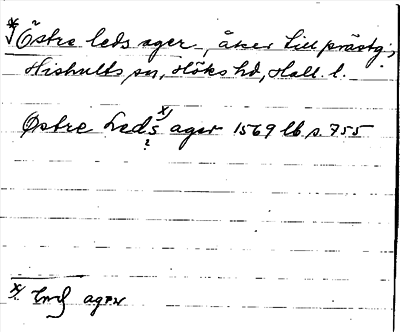 *Östra leds ager, åker till prästg.,
Hishults sn, Höks hd, Hall. l.
Østre Leds x) ager 1569 lb s. 755
?
x/ ager